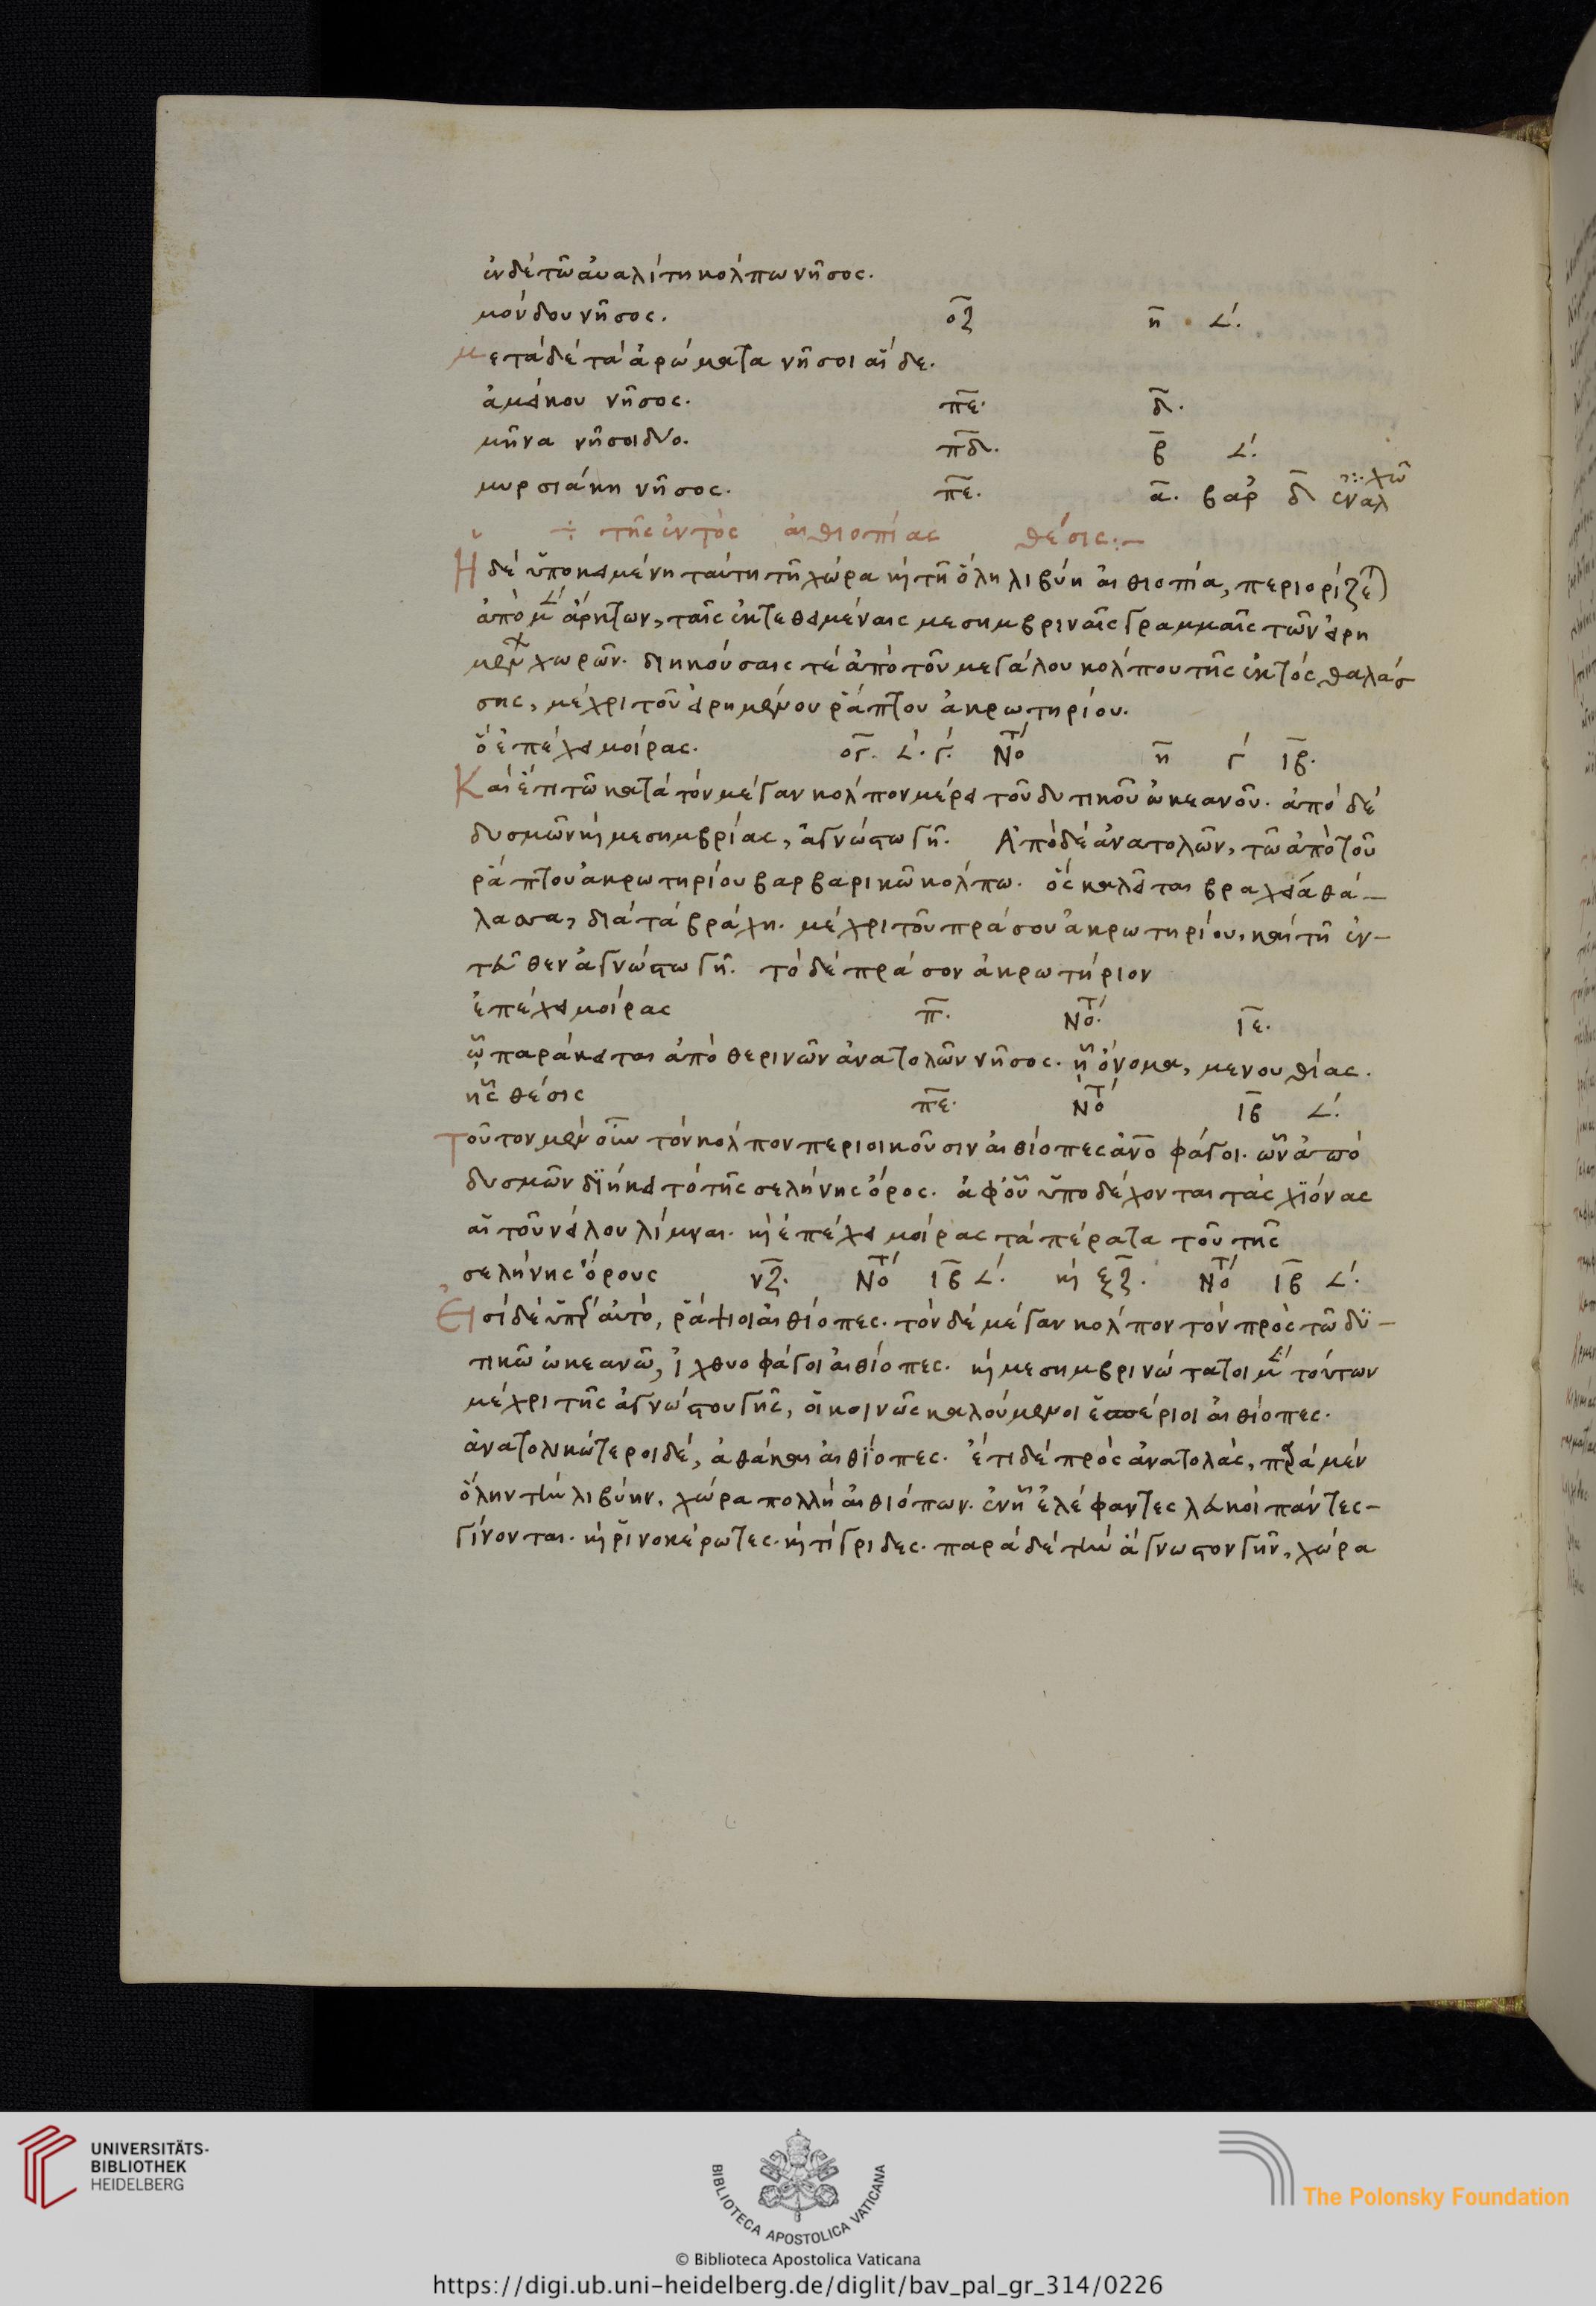 ἐν δὲ τῶ ἀυαλίτη κόλπω νῆσος.
μόνδου νῆσος. οζ η ∠´.
μετὰ δὲ τὰ ἀρώματα νῆσοι αἵδε.
ἀμείκου νῆσος. πε. δ.
μῆνα νῆσοι δύο. πδ. β ∠´.
μυρσιάκη νῆσος. πε. α. βαρ δ
÷ τῆς ἐντὸς ἀιθιοπίας θέσις:–
Ἡ δὲ ὑποκειμένη ταύτη τῆ χώρα κ̀ τῆ ὅλη λιβύη ἀιθιοπία, περιορίζε)
ἀπὸ μ̀ ἄρκτων, ταῖς ἐκτεθειμέναις μεσημβριναῖς γραμμαῖς τῶν εἰρη
μένων χωρῶν. διηκούσαις τὲ ἀπὸ τοῦ μεγάλου κόλπου τῆς ἐκτὸς θαλάσ
σης, μέχρι τοῦ εἰρημένου ῥάπτου ἀκρωτηρίου.
ὃ ἐπέχει μοίρας. ογ. ∠´. γ´. Νο^τ´ η γ´ ιβ.
Καὶ ἔτι τῶ κατὰ τὸν μέγαν κόλπον μέρει τοῦ δυτικοῦ ὠκεανοῦ. ἀπὸ δὲ
δυσμῶν κ̀ μεσημβρίας, ἀγνώστω γῆ. Ἀπὸ δὲ ἀνατολῶν, τῶ ἀπὸ τοῦ
ῥάπτου ἀκρωτηρίου βαρβαρικῶ κόλπω. ὃς καλεῖται βραχεῖα θά–
λασσα, διὰ τὰ βράχη. μέχρι τοῦ πράσου ἀκρωτηρίου, καὶ τῆ ἐν–
τεῦθεν ἀγνώστω γῆ. τὸ δὲ πράσον ἀκρωτήριον
ἐπέχει μοίρας π. Νο^τ´. ιε.
ᾧ παράκειται ἀπὸ θερινῶν ἀνατολῶν νῆσος. ᾗ ὄνομα, μενουθίας.
ἧς θέσις πε. Νο^τ´ ιβ ∠´.
Τοῦτον μὲν οὖν τὸν κόλπον περιοικοῦσιν ἀιθίοπες ἀνο φάγοι. ὧν ἀπὸ
δυσμῶν διήκει τὸ τῆς σελήνης ὄρος. ἀφ' οὗ ὑποδέχονται τὰς χιόνας
αἱ τοῦ νείλου λίμναι. κ̀ ἐπέχει μοίρας τὰ πέρατα τοῦ τῆς
σελήνης ὄρους νζ. Νο^τ´ ιβ ∠´. κ̀ ξζ. Νο^τ´ ιβ ∠´.
Εἰσὶ δὲ ὑπὲρ αὐτὸ, ῥάψιοι ἀιθίοπες. τὸν δὲ μέγαν κόλπον τὸν πρὸς τῶ δυ–
τικῶ ὠκεανῶ, ἰχθυοφάγοι ἀιθίοπες. κ̀ μεσημβρινώτατοι μ̀ τούτων
μέχρι τῆς ἀγνώστου γῆς, οἱ κοινῶς καλούμενοι ἑσπέριοι ἀιθίοπες.
ἀνατολικώτεροι δὲ, ἀθάκαι ἀιθίοπες. ἔτι δὲ πρὸς ἀνατολὰς, παρὰ μὲν
ὅλην τὴν λιβύην. χώρα πολλὴ ἀιθιόπων. ἐν ᾗ ἐλέφαντες λευκοὶ πάντες–
γίνονται. κ̀ ῥινοκέρωτες. κ̀ τίγριδες. παρὰ δὲ τὴν ἄγνωστον γῆν, χώρα
UNIVERSITÄTS-
BIBLIOTHEK
HEIDELBERG
BIBLIOTECA APOSTOLICA VATICANA
© Biblioteca Apostolica Vaticana
The Polonsky Foundation
https://digi.ub.uni-heidelberg.de/diglit/bav_pal_gr_314/0226